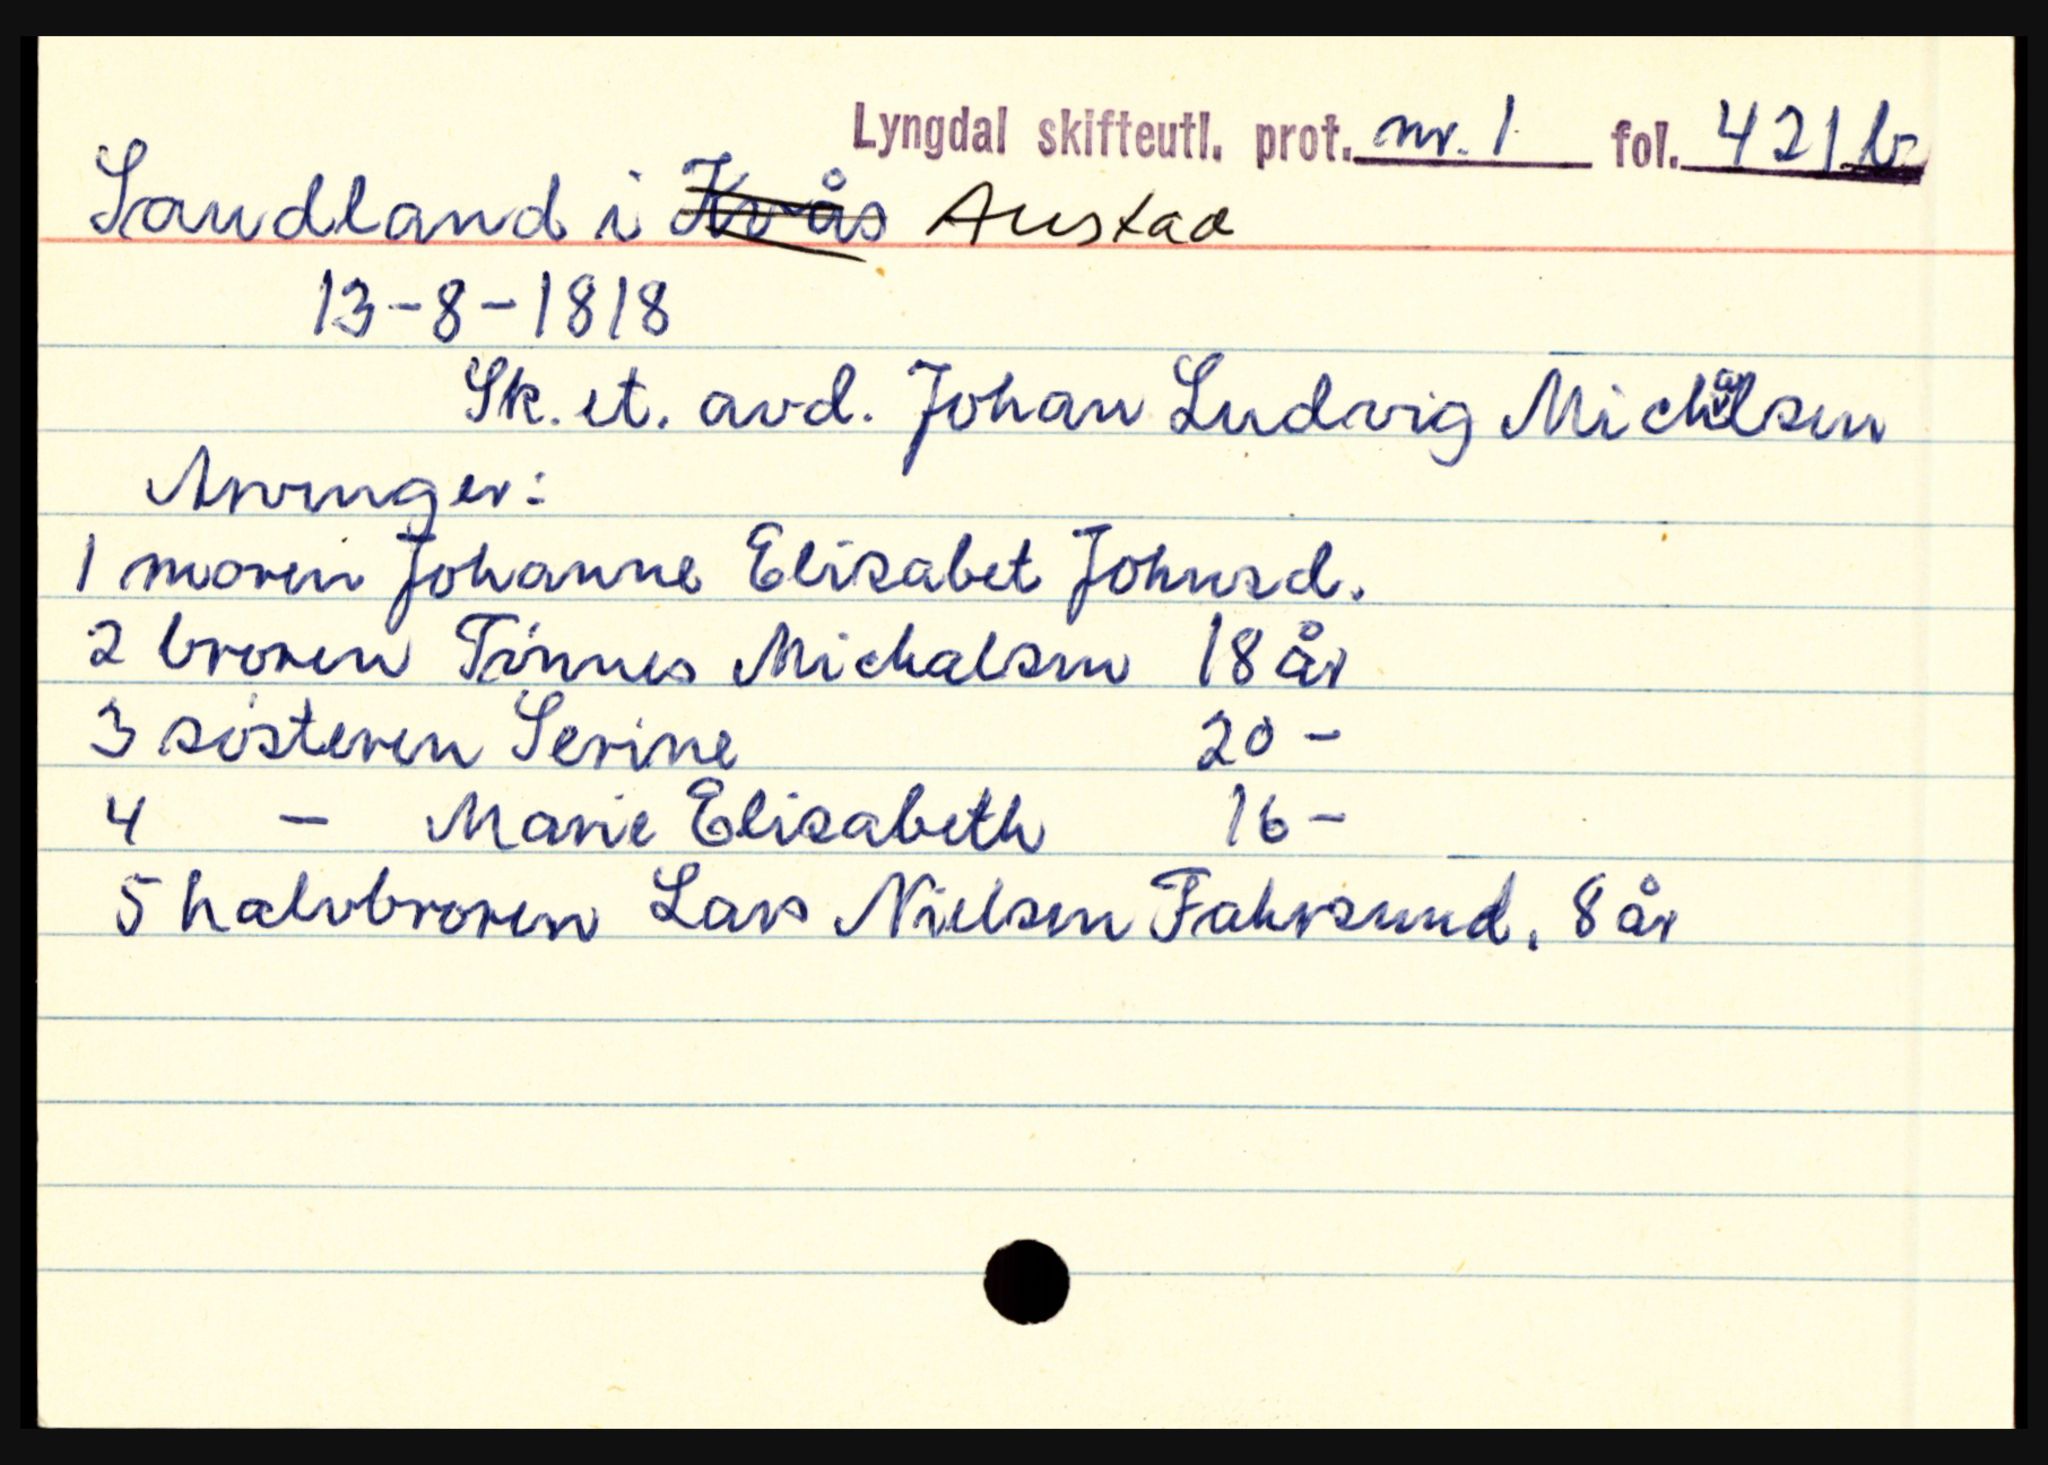 Lyngdal skifteutl. prot. nr. 1 fol. 421 b
Sandland i Kvås Austad
13-8-1818
Sk. et. avd. Johan Ludvig Michalsen
Arvinger:
1 moren Johanne Elisabet Johnsd.
2 broren Tönnes Michalsen 18 år
3 sösteren Serine 20 -
4 - Marie Elisabeth 16 -
5 halvbroren Lars Nielsen Fahrsund, 8 år